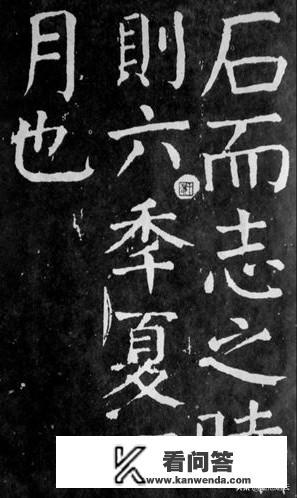 石而志之時
則六季夏
月也
K 看问答
www.kanwenda.com